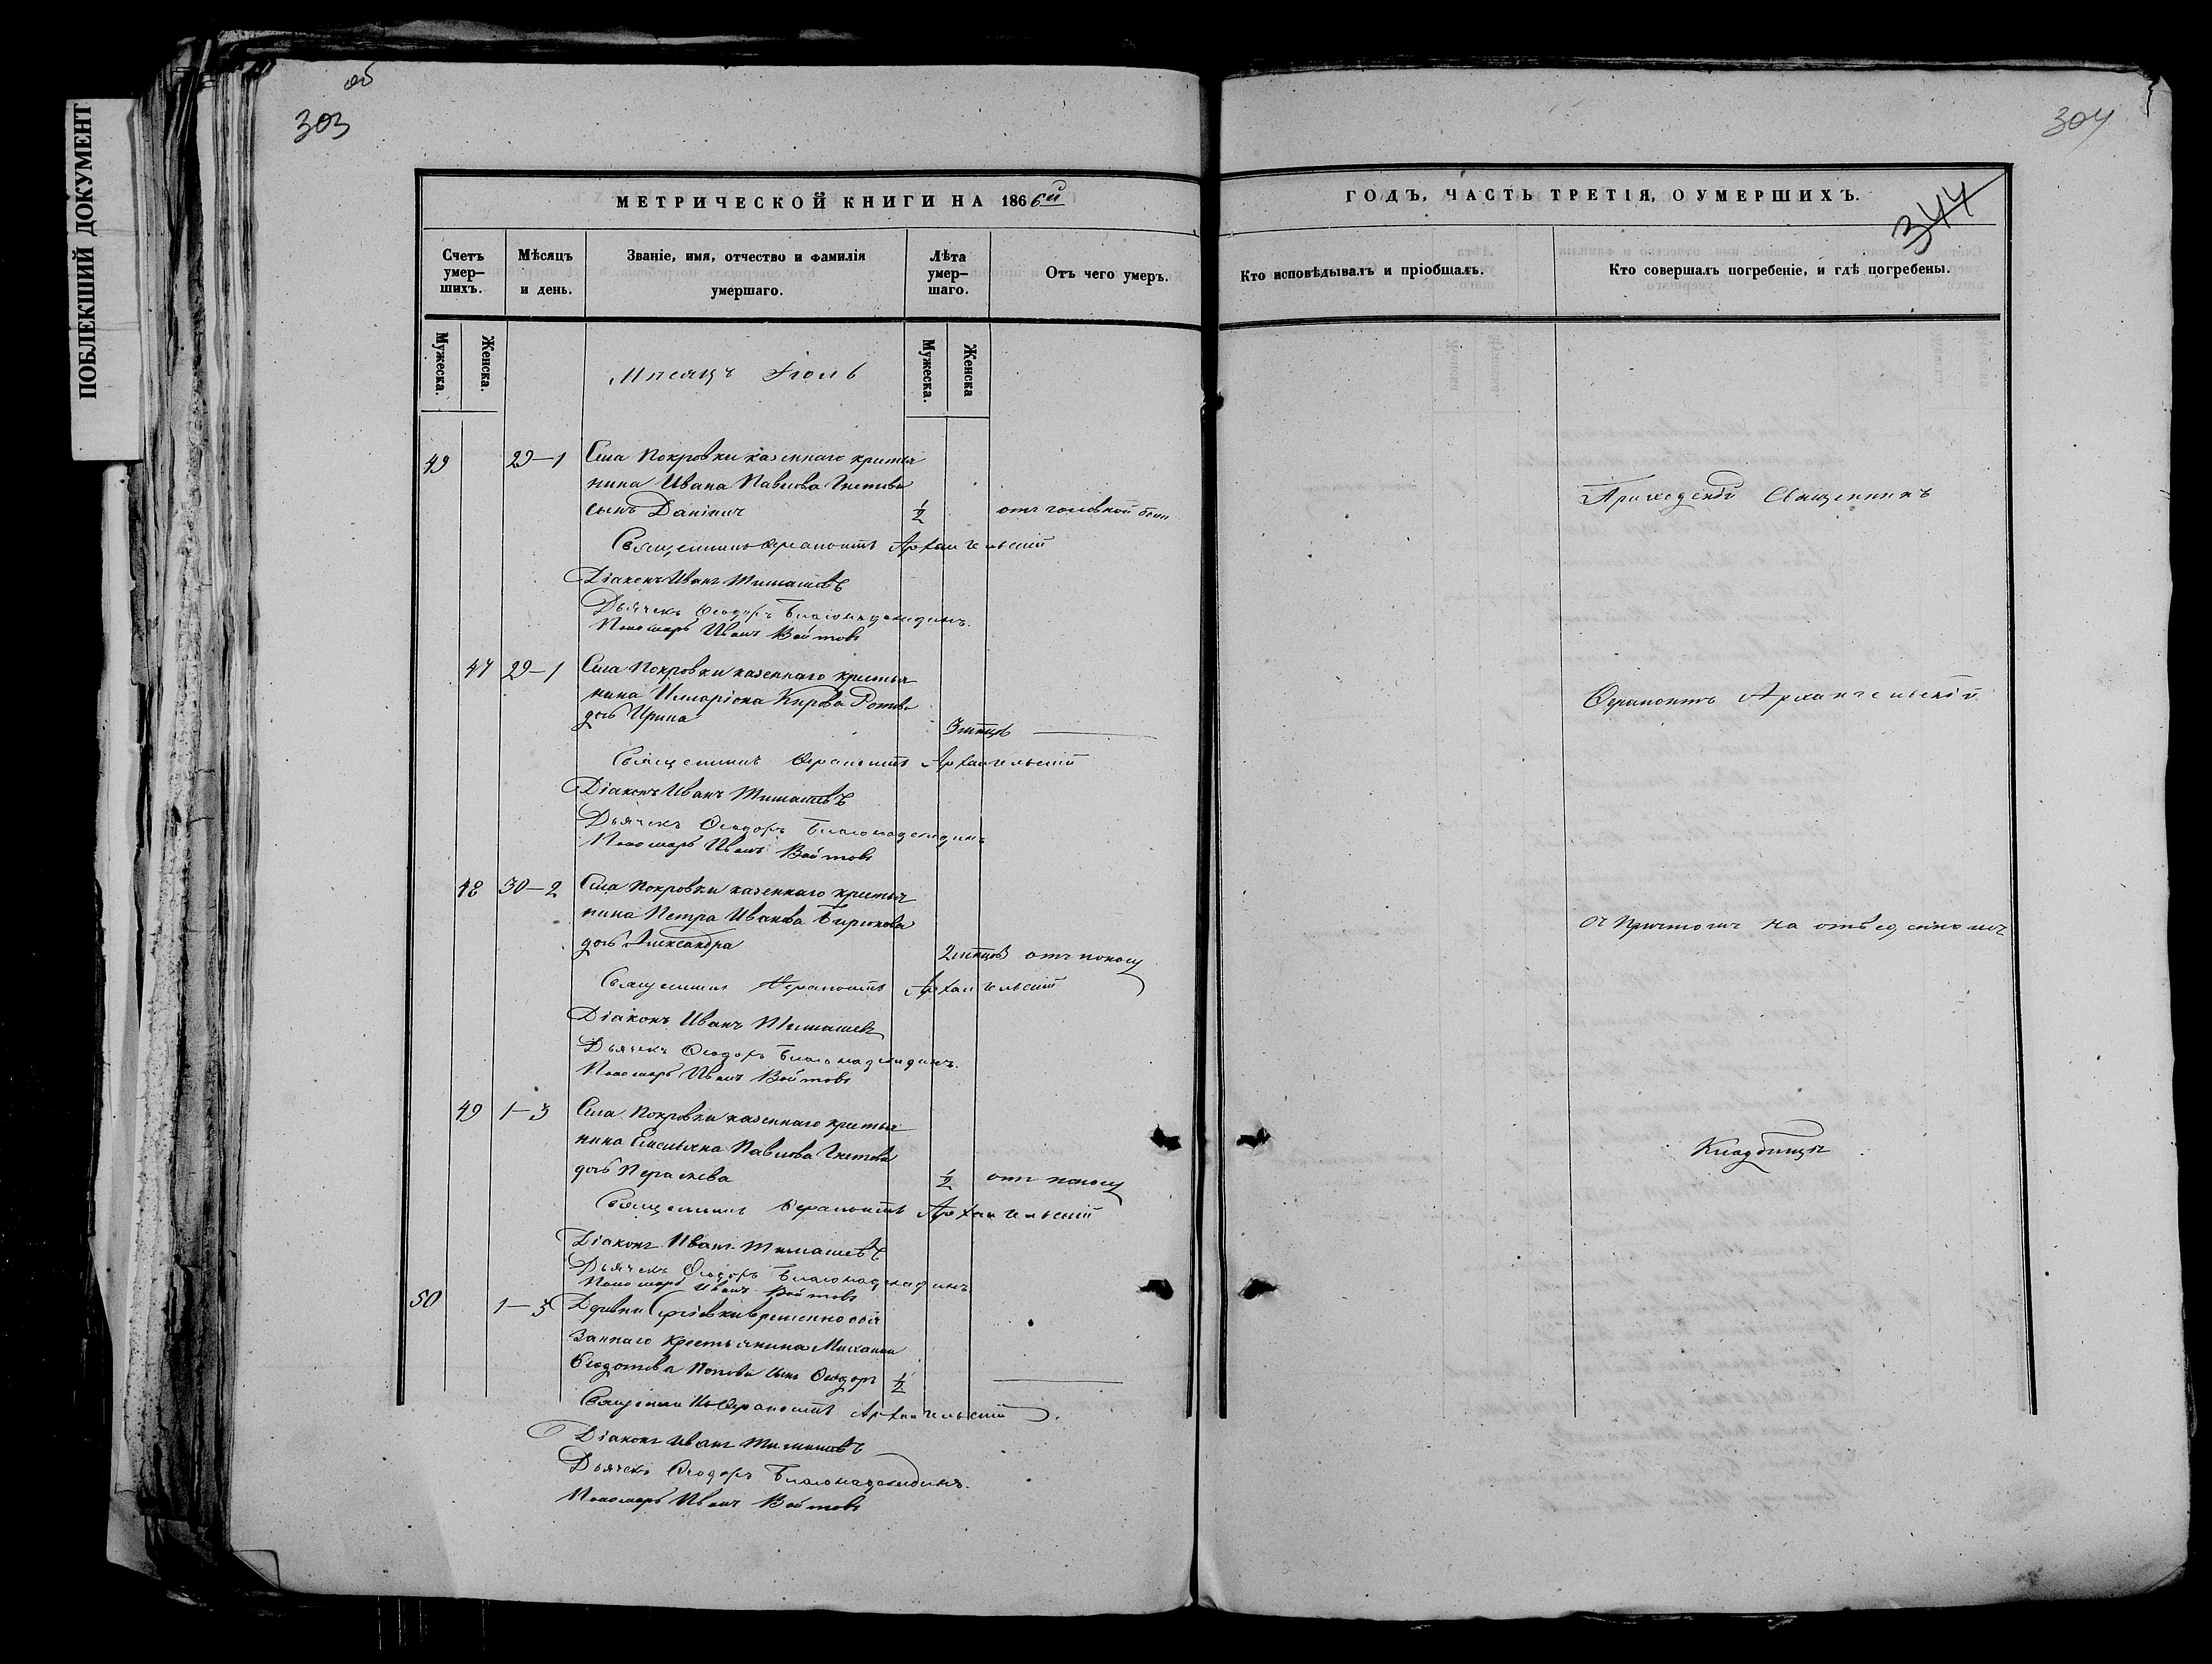 ПОБЛЕКШИЙ ДОКУМЕНТ
об
303
304
344
МЕТРИЧЕСКОЙ КНИГИ НА 1866й
ГОДЪ, ЧАСТЬ ТРЕТІЯ, О УМЕРШИХЪ.
Счетъ умер-шихъ.
Мѣсяцъ и день.
Званіе, имя, отчество и фамилія умершаго.
Лѣта умер-шаго.
Отъ чего умеръ.
Кто исповѣдывалъ и пріобщалъ.
Кто совершалъ погребеніе, и гдѣ погребены.
Мужеска. Женска. Мужеска. Женска
Мѣсяцъ Іюль
49 29–1 Села Покровки казеннаго крестья
нина Ивана Павлова
сынъ 1/2 отъ головной боли
Священникъ Ферапонтъ Архангельскій
Діаконъ Иванъ Тимашевъ
Дьячекъ Ѳеодоръ Благонадеждинъ.
Пономарь Иванъ Войтовъ
47 29–1 Села Покровки казеннаго крестья
нина Иларіона Кирова
дочь Ирина 3 мѣсяцъ —
Священникъ Ферапонтъ Архангельскій
Діаконъ Иванъ Тимашевъ
Дьячекъ Ѳеодоръ Благонадеждинъ
Пономарь Иванъ Войтовъ
48 30–2 Села Покровки казеннаго крестья
нина Петра Иванова Бирюкова
дочь Александра 2 мѣсяцъ отъ поносу
Священникъ Ферапонтъ Архангельскій
Діаконъ Иванъ Тимашевъ
Дьячекъ Ѳеодоръ Благонадеждинъ.
Пономарь Иванъ Войтовъ
49 1–3 Села Покровки казеннаго крестья
нина Павлова
дочь 1/2 отъ поносу
Священникъ Ферапонтъ Архангельскій
Діаконъ Иванъ Тимашевъ
Дьячекъ Ѳеодоръ Благонадеждинъ
Пономарь Иванъ Войтовъ
50 1–3 Дервни Сергіевки временно обя
заннаго крестьянина Михаила
Ѳедотова Попова сынъ Ѳеодоръ 1/2 —
Священникъ Ферапонтъ Архангельскій
Діаконъ Иванъ Тимашевъ
Дьячекъ Ѳеодоръ Благонадеждинъ.
Пономарь Иванъ Войтовъ
Приходскій Священникъ
Ферапонтъ Архангельскій
съ Причтомъ на отведенномъ
Кладбищѣ